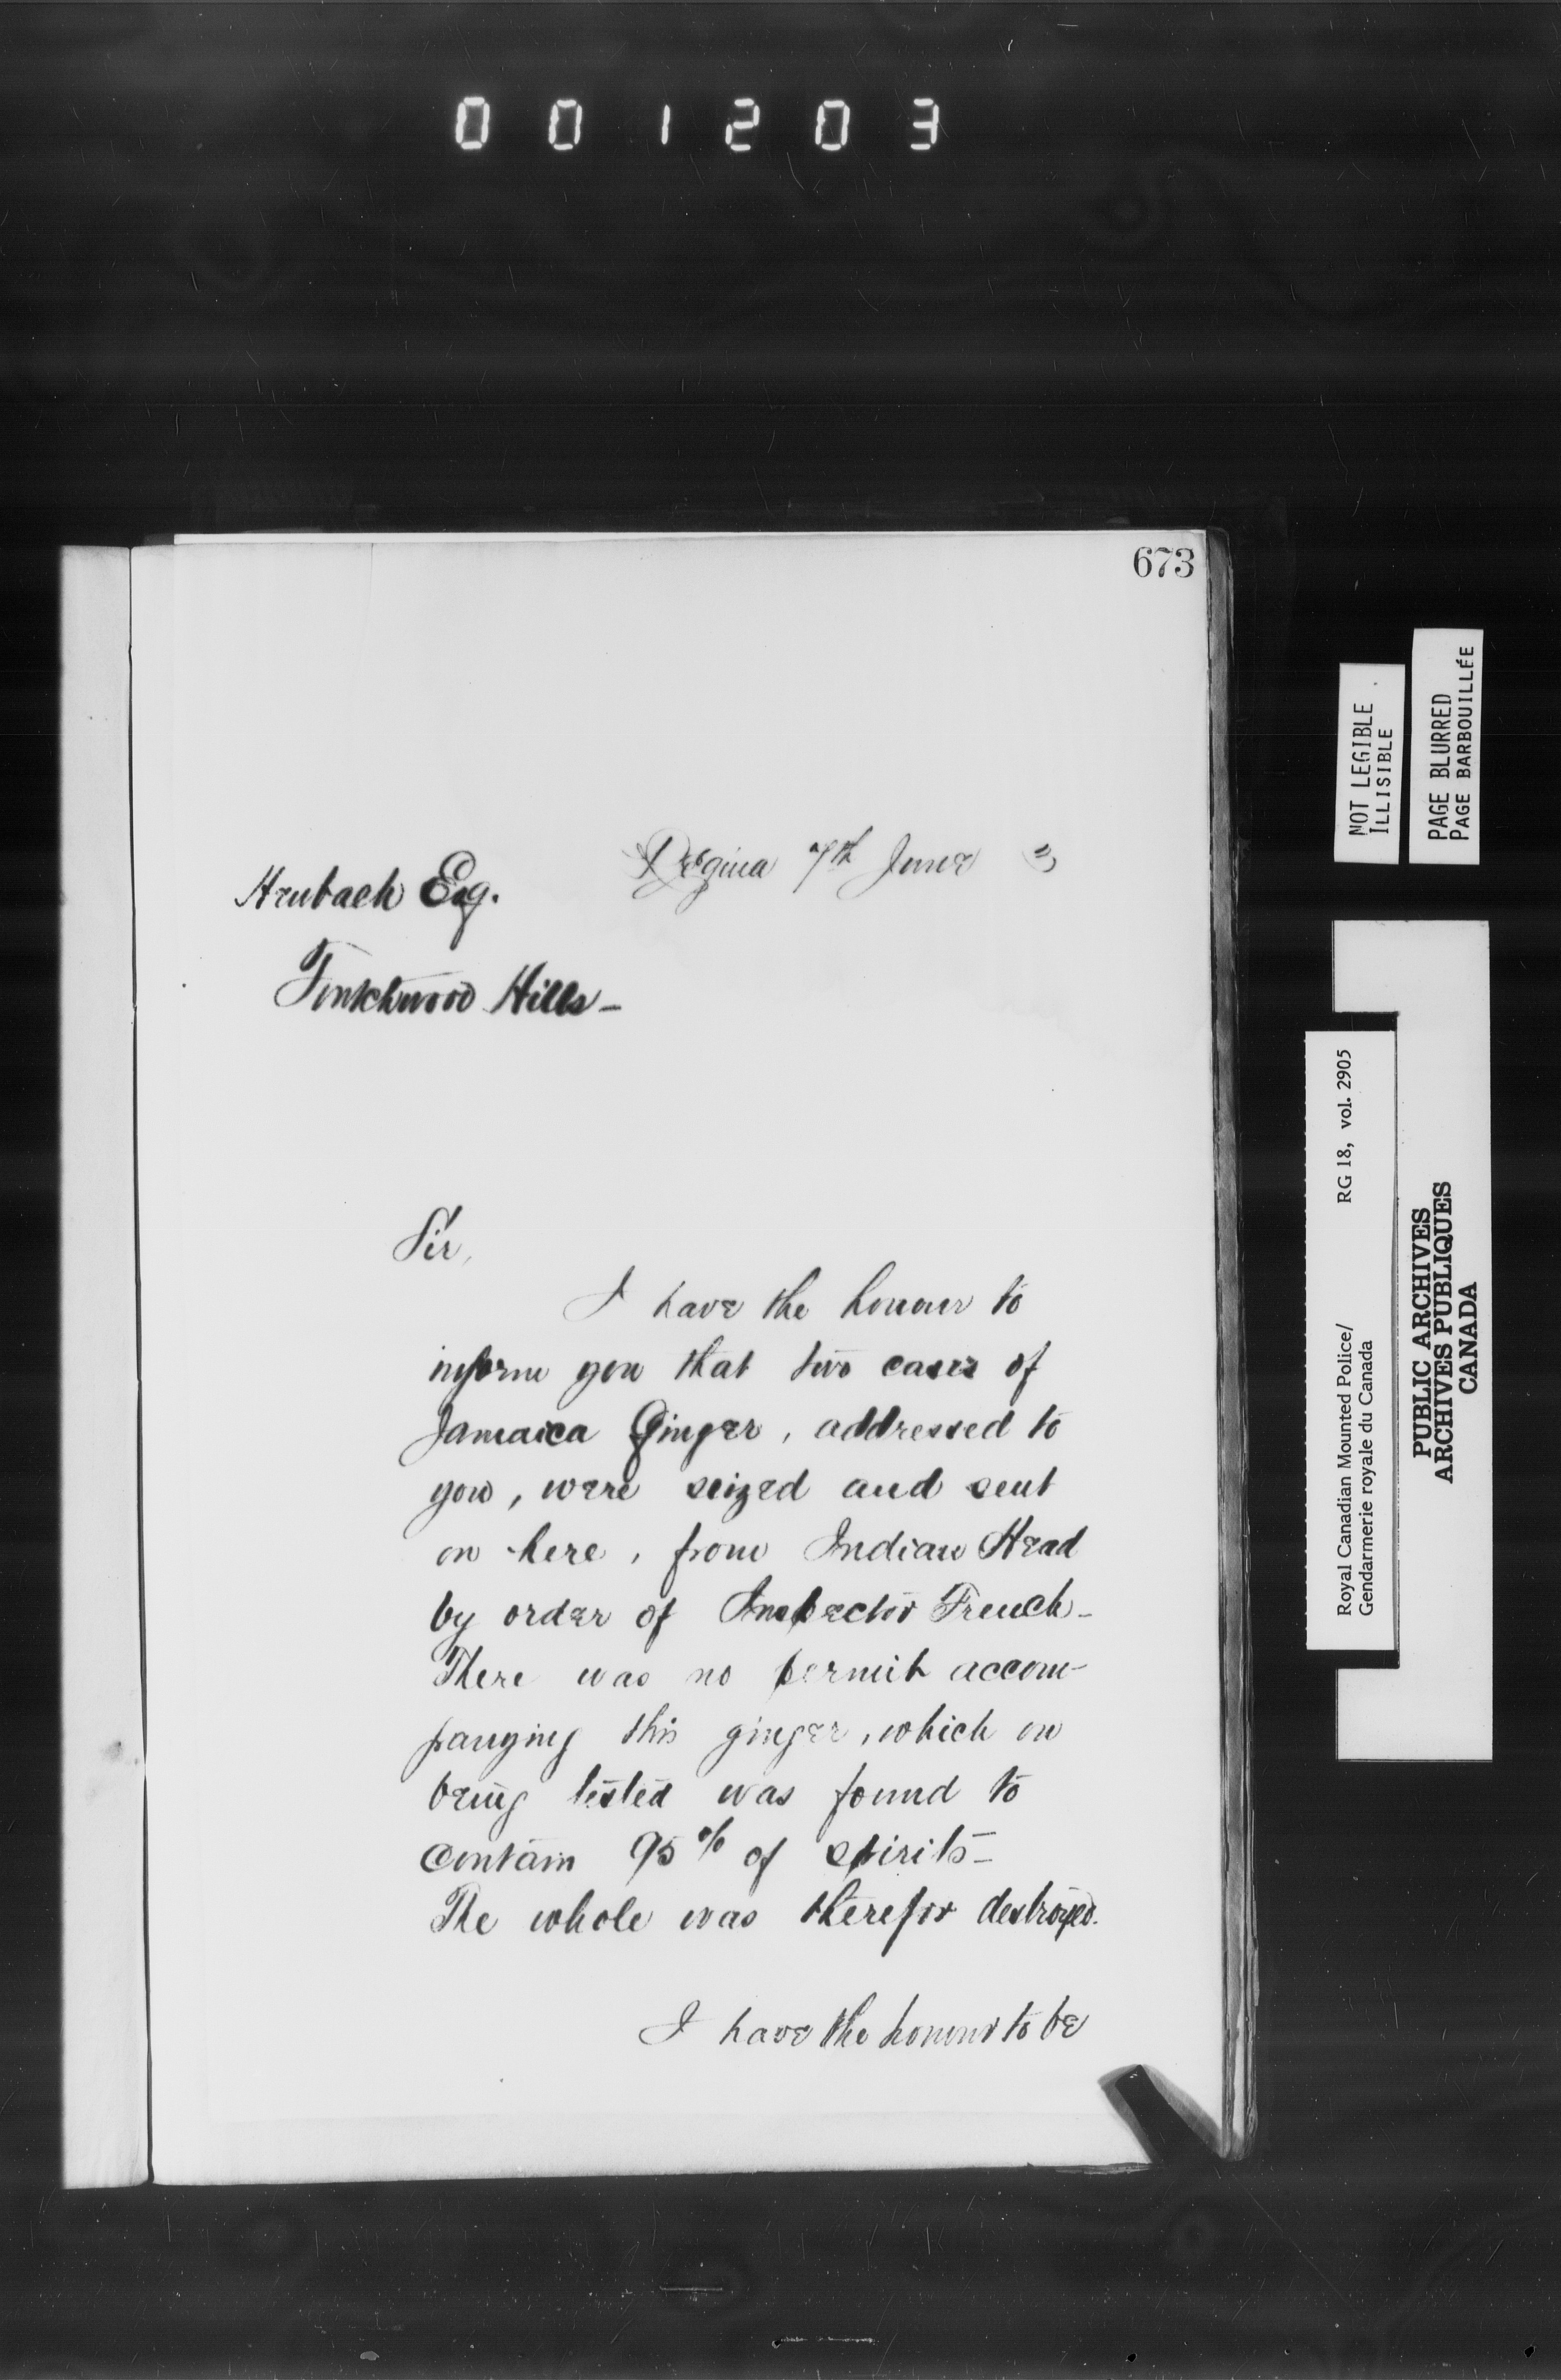 001203
673
Regina 7th June 3
Heubach Esq.
Touchwood Hills -
Sir,
I have the honour to
inform you that two cases of
Jamaica Ginger, addressed to
you, were seized and sent
on here, from Indian Head
by order of Inspector French -
There was no permit accom-
panying this ginger, which on
being tested was found to
contain 95% of spirits -
The whole was therefor destroyed.
I have the honour to be
NOT LEGIBLE
ILLISIBLE
PAGE BLURRED
PAGE BARBOUILLÉE
Royal Canadian Mounted Police/ RG 18, vol. 2905
Gendarmerie royale du Canada
PUBLIC ARCHIVES
ARCHIVES PUBLIQUES
CANADA